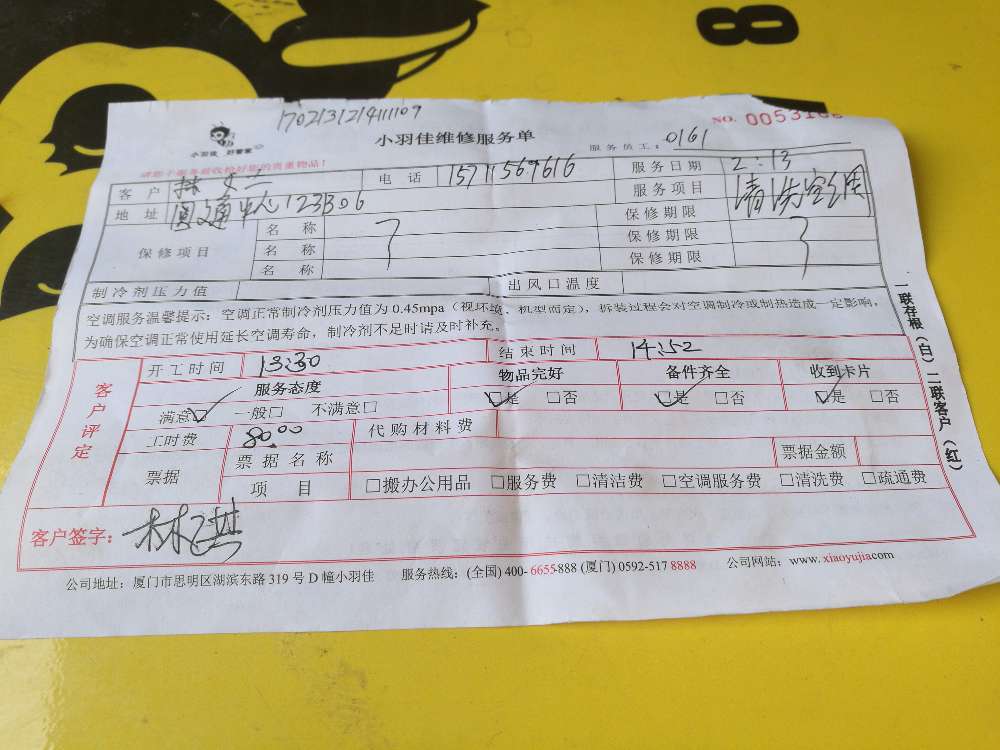 8
170213121411109
小羽佳维修服务单
NO. 00531
小羽佳 好管家
服务员工：0161
请您于服务前收拾好您的贵重物品！
客户 林女士 电话 15711569616 服务日期 2:13
地址 圆通中心123B06 服务项目 清洗空调
保修项目 名称 保修期限
名称 保修期限
名称 保修期限
制冷剂压力值 出风口温度
空调服务温馨提示：空调正常制冷剂压力值为0.45mpa（视环境、机型而定），拆装过程会对空调制冷或制热造成一定影响，
为确保空调正常使用延长空调寿命，制冷剂不足时请及时补充。
客户评定
开工时间 13:30 结束时间 14:52
服务态度 物品完好 备件齐全 收到卡片
满意□ 一般□ 不满意□ □是 □否 □是 □否 □是 □否
工时费 80.00 代购材料费
票据 票据名称 票据金额
项目 □搬办公用品 □服务费 □清洁费 □空调服务费 □清洗费 □疏通费
客户签字：林
一联存根（白）二联客户（红）
公司地址：厦门市思明区湖滨东路319号D幢小羽佳 服务热线：(全国)400-6655-888 (厦门)0592-517 8888 公司网站：www.xiaoyujia.com